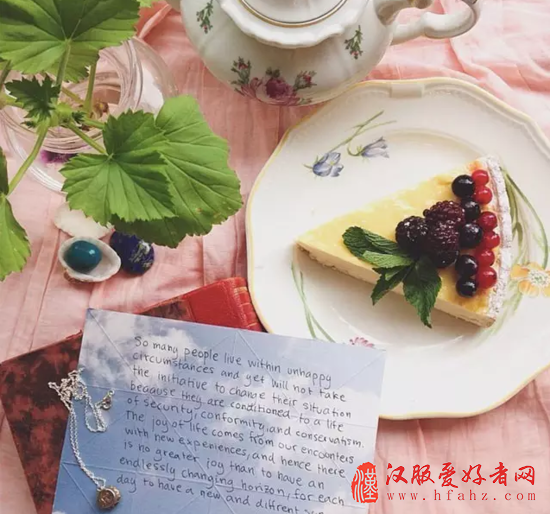 So many people live within unhappy
circumstances and yet will not take
the initiative to change their situation
because they are conditioned to a life
of security, conformity, and conservatism.
The joy of life comes from our encounters
with new experiences, and hence there
is no greater joy than to have an
endlessly changing horizon, for each
day to have a new and different sun
汉服爱好者网
www.hfahz.com